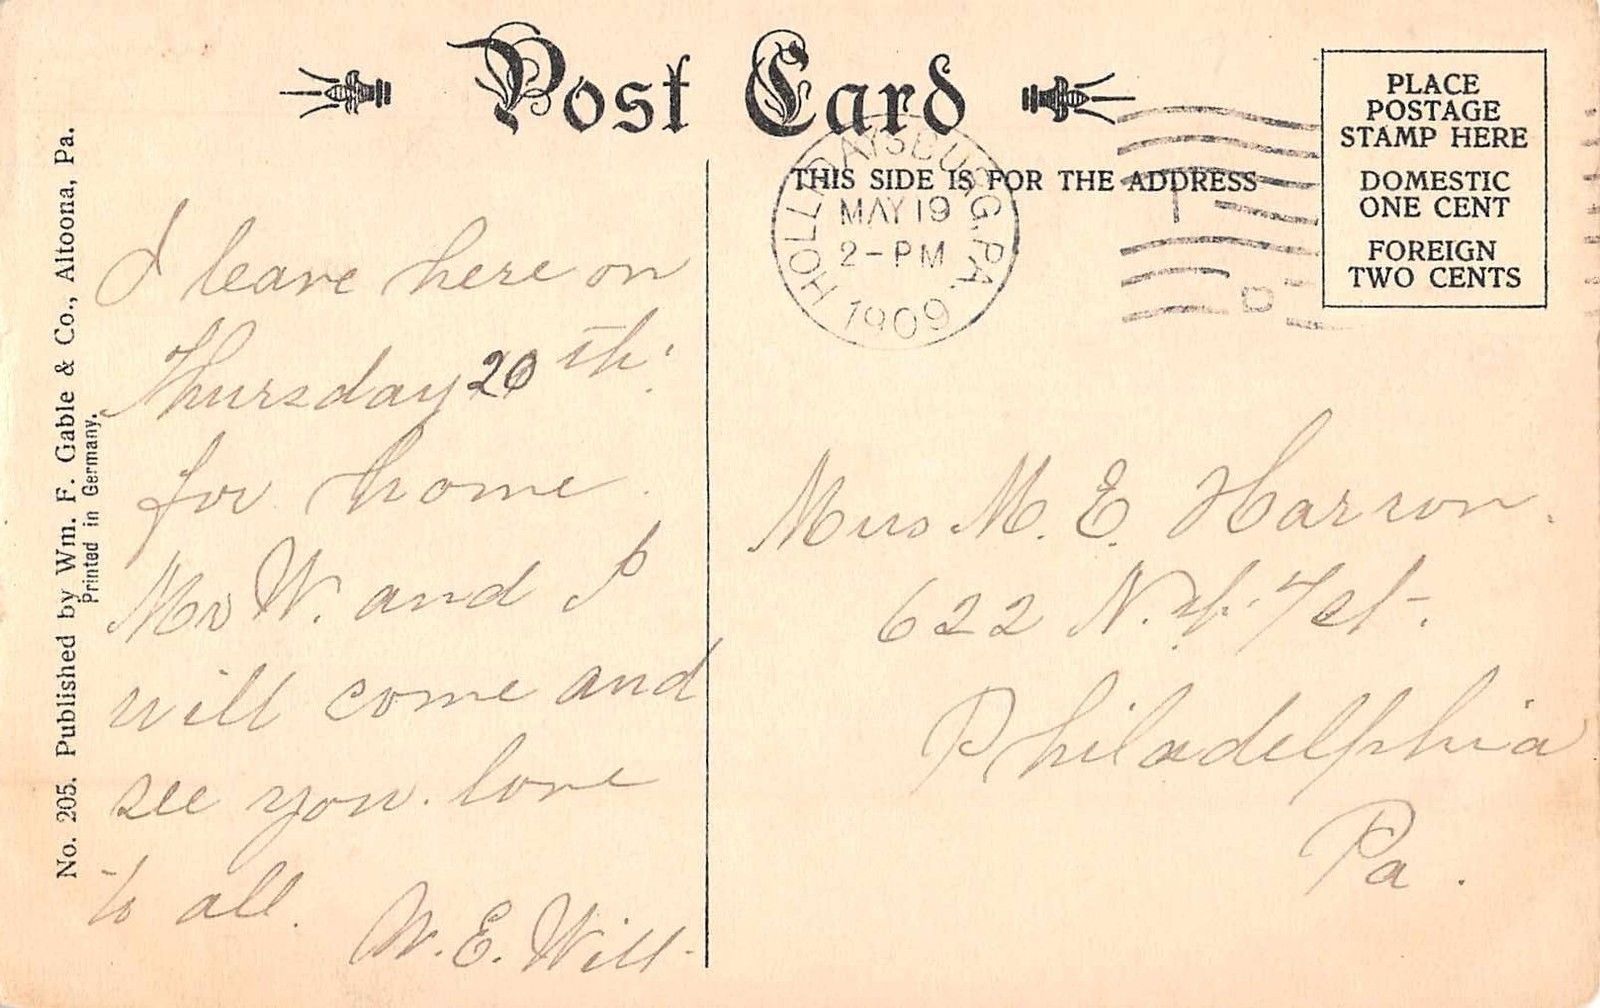 Post Card
THIS SIDE IS FOR THE ADDRESS
PLACE
POSTAGE
STAMP HERE
DOMESTIC
ONE CENT
FOREIGN
TWO CENTS
HOLLIDAYSBURG, PA.
MAY 19
2-PM
1909
No. 205. Published by Wm. F. Gable & Co., Altoona, Pa.
Printed in Germany.
I leave here on
Thursday 20th.
for home.
W. and I
will come and
see you. love
to all.
W. E. Will
M. E. Harron.
622 N. st.
Philadelphia
Pa.